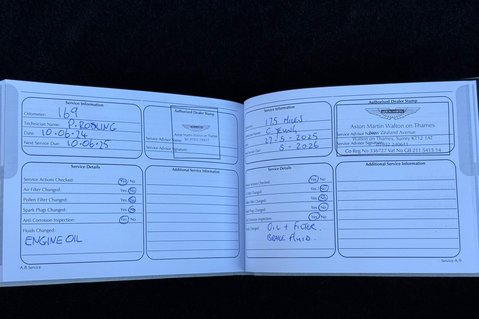 Service Information
Odometer: 169
Technician Name: P. ROSLING
Date: 10.06.24
Next Service Due: 10.06.25
Authorised Dealer Stamp
Aston Martin Walton on Thames
Service Advisor Name:
Service Advisor Signature:
Service Details
Service Actions Checked: Yes No
Air Filter Changed: Yes No
Pollen Filter Changed: Yes No
Spark Plugs Changed: Yes No
Anti Corrosion Inspection: Yes No
Fluids Changed:
ENGINE OIL
Additional Service Information
A.8 Service
Service Information
175 MILES
27-5-2025
5-2026
Authorised Dealer Stamp
Aston Martin Walton on Thames
Service Advisor Name:
Zealand Avenue
Walton on Thames, Surrey KT12 1AT
Service Advisor Signature:
01932 240611
Co Reg No 336727 Vat No GB 211 5415 14
Service Details
Actions Checked: Yes No
Changed: Yes No
Filter Changed: Yes No
Plugs Changed: Yes No
Corrosion Inspection: Yes No
Changed: OIL + FILTER.
BRAKE FLUID.
Additional Service Information
Service A.9